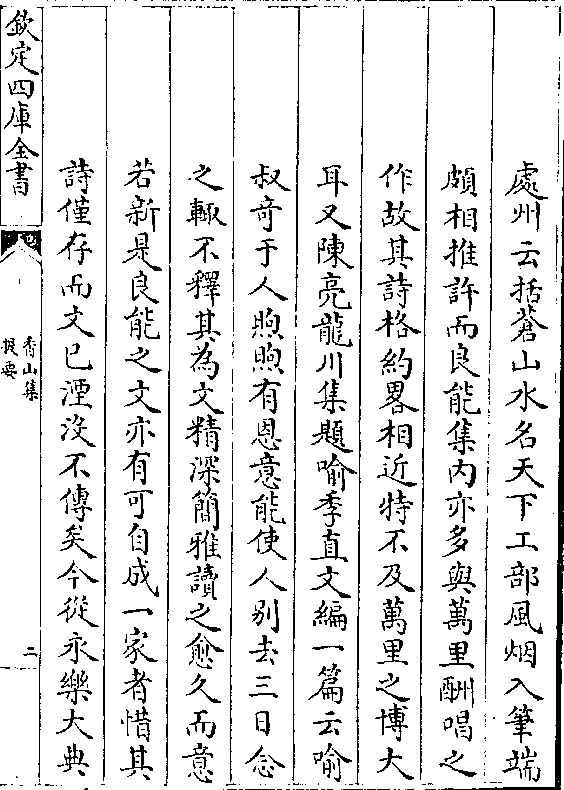 處州云括蒼山水名天下工部風烟入筆端
頗相推許而良能集内亦多與萬里酬唱之
作故其詩格約畧相近特不及萬里之博大
耳又陳亮龍川集題喻季直文編一篇云喻
叔竒于人煦煦有恩意能使人别去三日念
之輙不釋其為文精深簡雅讀之愈久而意
若新是良能之文亦有可自成一家者惜其
詩僅存而文已湮没不傳矣今從永樂大典
欽定四庫全書
香山集
提要
二